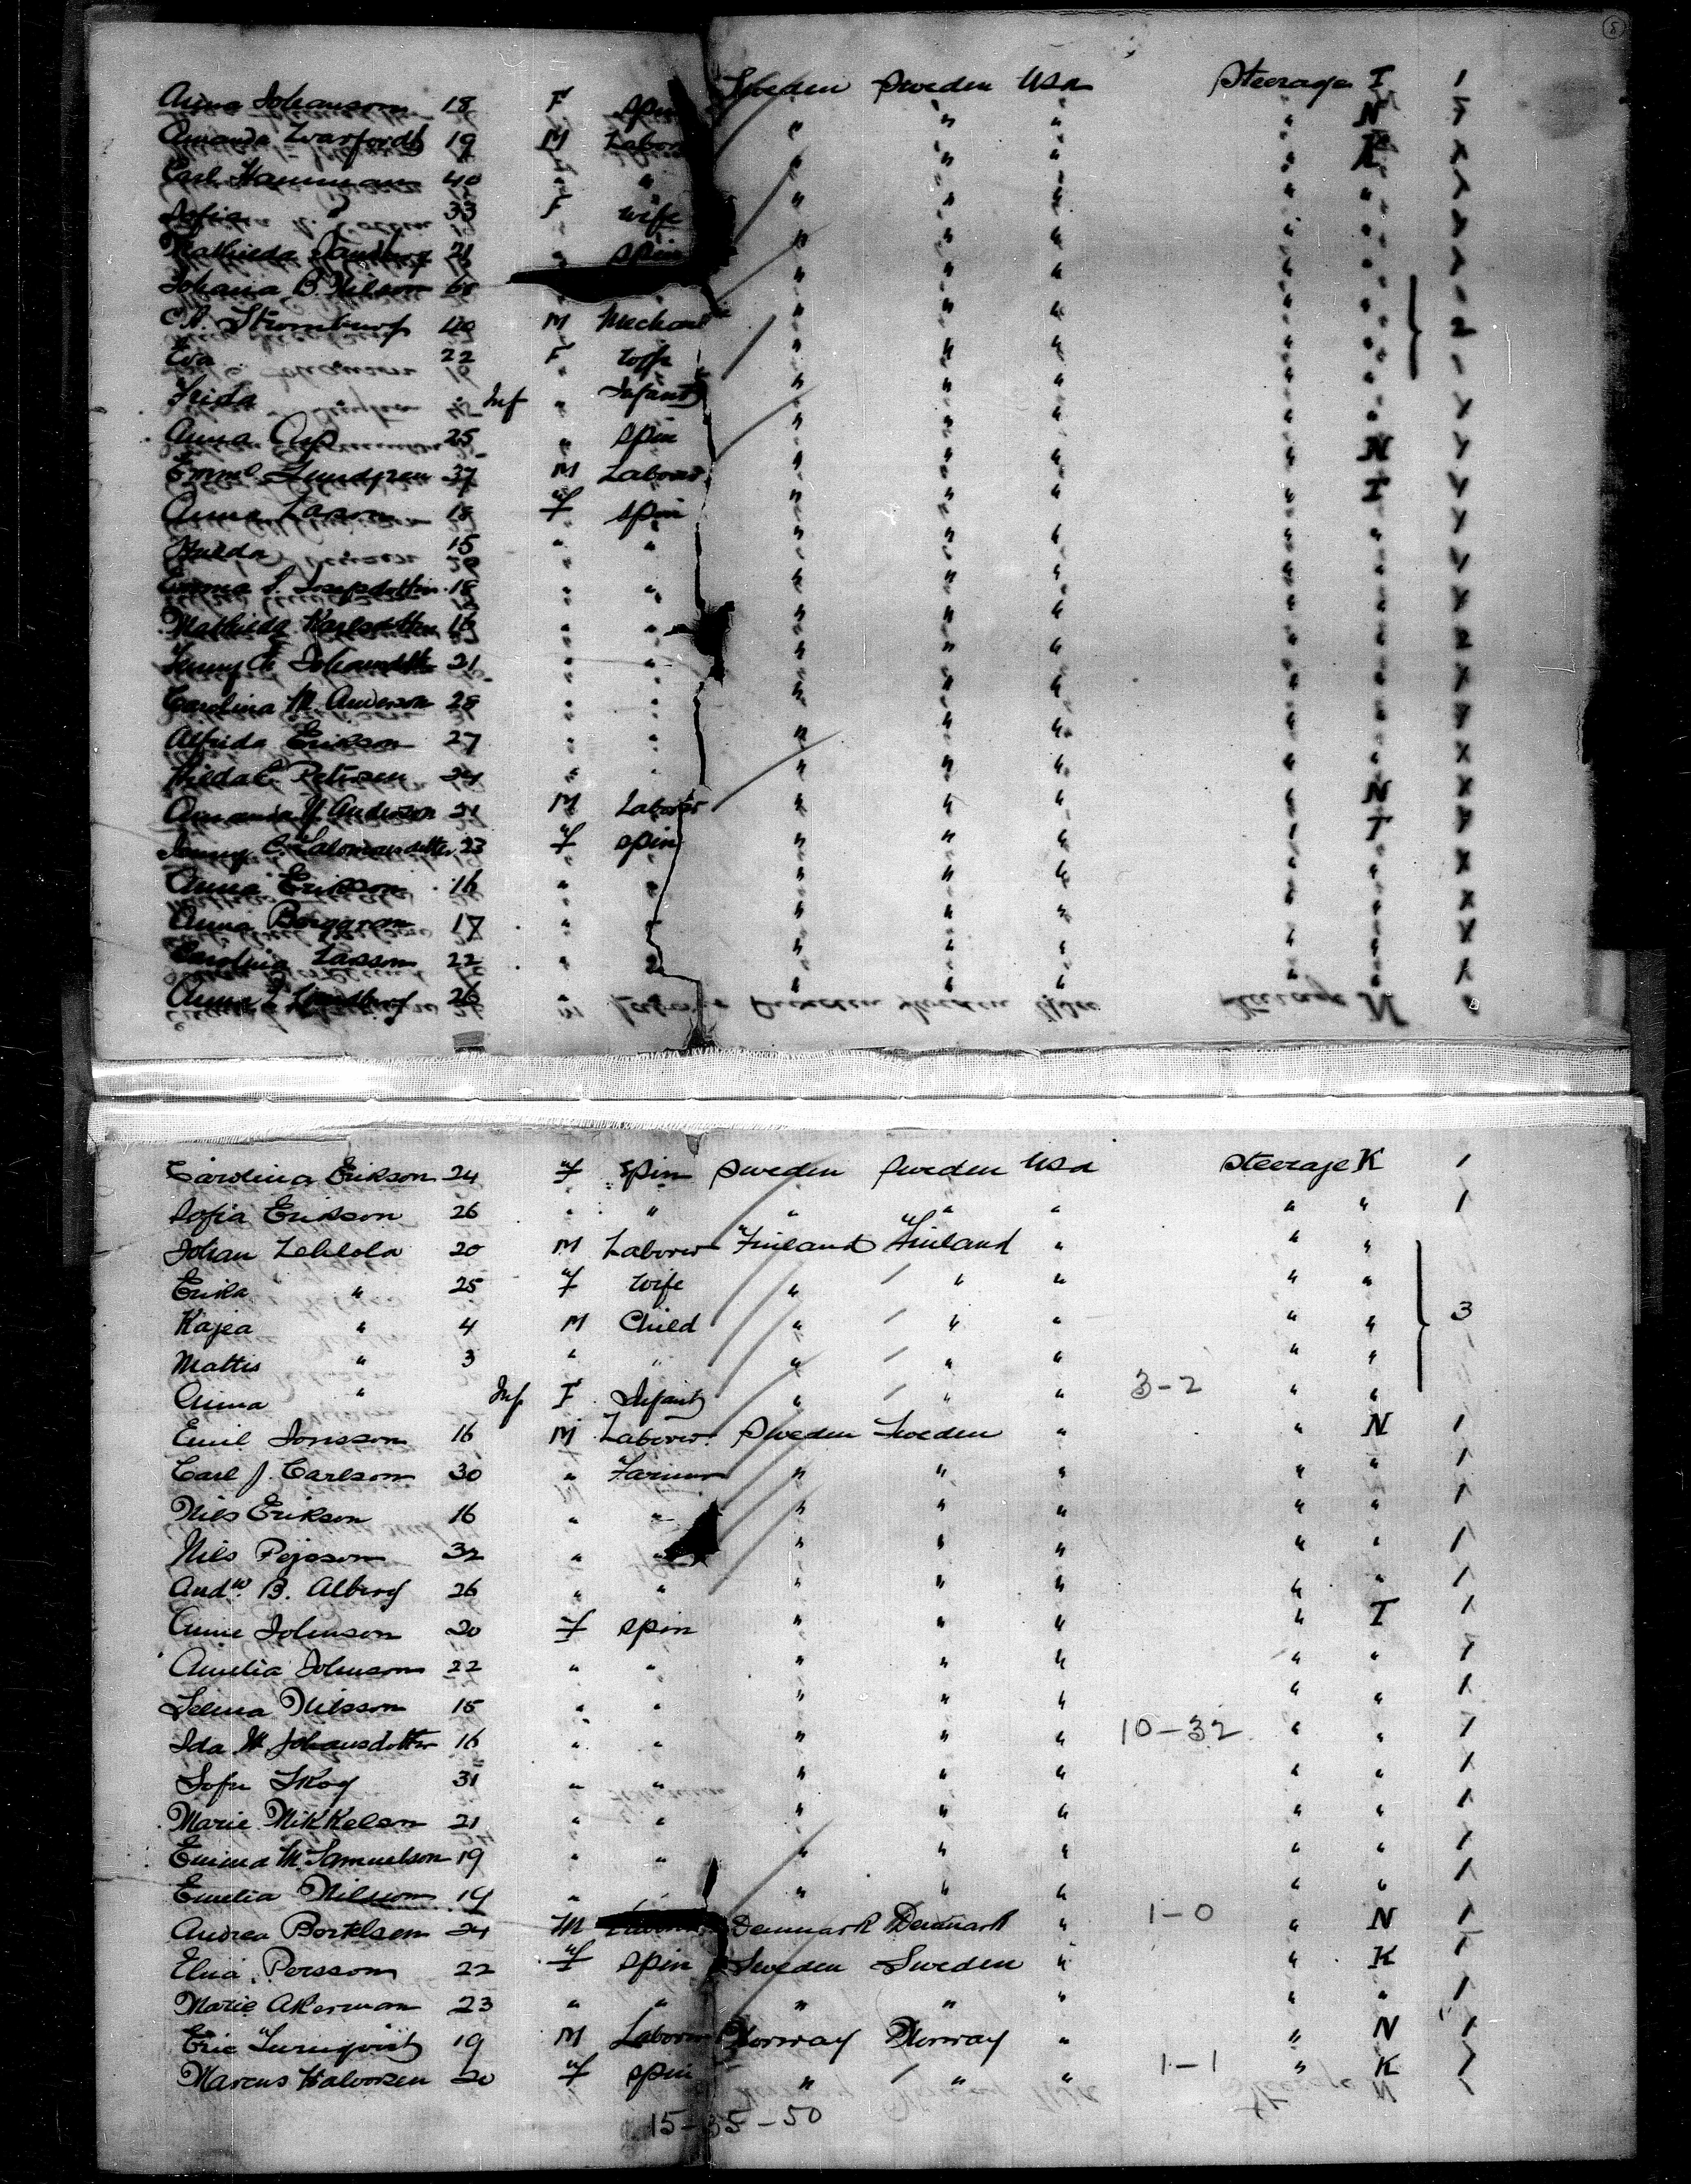 8
Anna Johanson 18 F Spin Sweden Sweden Usa Steerage I 1
Amanda 19 M Labor " " " " N
Carl Hamman 40 " " " " " "
Sofia " 33 F wife " " " " "
Mathilda Sandberg 21 " Spin " " " " "
Johana B. Nilson " " " " "
C.A. Stromburg 40 M Mechani " " " " " 2
Eva 22 F wife " " " " "
Frida Inf " Infant " " " " "
Anna Asp 25 " Spin " " " " "
Emml Lundgren 37 M Laborer " " " " N
Anna Larson 18 f Spin " " " " I
Hulda " 15 " " " " " " "
Emma S. Josefsdotter 18 " " " " " " "
Mathilda Karlsdotter 16 " " " " " " "
Jenny Ch. 21 " " " " " " "
Carolina M. Anderson 28 " " " " " " "
Alfrida Erikson 27 " " " " " " "
Hilda C. Peterson 24 " " " " " " "
Amanda Anderson 21 M Laborer " " " " N
Jenny C. Salomansdotter 23 f Spin " " " " I
Anna Erikson 16 " " " " " " "
Anna Berggren 17 " " " " " "
Carolina Larson 22 " " " " " "
Anna L. Lindberg 26 " " " " " "
Carolina Erikson 24 f Spin Sweden Sweden Usa Steerage K 1
Sofia Erikson 26 " " " " " " " 1
Johan Lehlola 20 M Laborer Finland Finland " " "
Erika " 25 f wife " " " " "
Kajea " 4 M Child " " " " " 3
Mattis " 3 " " " " " " "
Anna " Inf F Infant " " " 3-2 " "
Emil Jonsson 16 M Laborer Sweden Sweden " " N 1
Carl J. Carlson 30 " Farmer " " " " " 1
Nils Erikson 16 " " " " " " " 1
Nils Pejsson 32 " " " " " " " 1
Andw. B. Alberg 26 " " " " " " " 1
Anne Johnson 20 f Spin " " " " I 1
Amelia Johnson 22 " " " " " " " 1
Selma Nilsson 15 " " " " " " " 1
Ida M. Johansdotter 16 " " " " " 10-32 " " 1
Sofie Skog 31 " " " " " " " 1
Marie Mikkelsen 21 " " " " " " " 1
Emma M. Samuelson 19 " " " " " " " 1
Emelia Nilsson 19 " " " " " " 1
Andrea Bortelsen 24 M Denmark Denmark " 1-0 " N 1
Elna Persson 22 f Spin Sweden Sweden " " K 1
Marie Akerman 23 " " " " " " " 1
Eric Turnqvist 19 M Laborer Norway Norway " " N 1
Marcus Halvorsen 20 f Spin " " " 1-1 " K 1
15-35-50